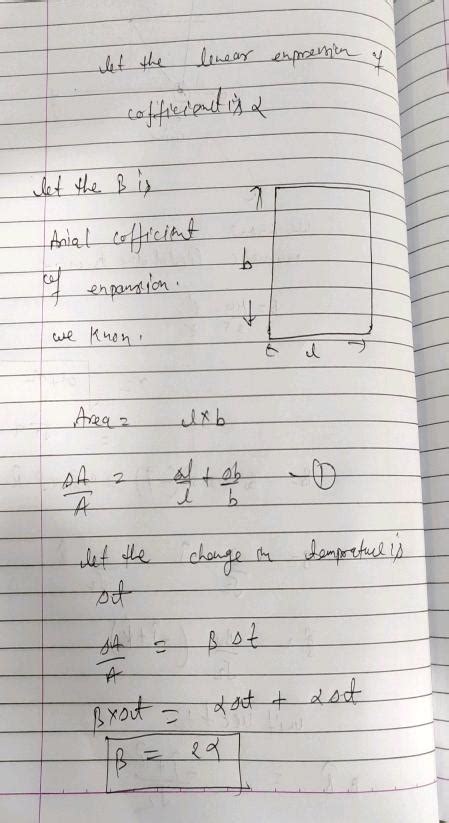 let the linear enpression of
cofficient is α
let the B is
Arial cofficient
of enpansion.
we know.
b
l
Area = l×b
ΔA/A = Δl/l + Δb/b - ①
let the change in temprature is
Δt
ΔA/A = B Δt
B×Δt = αΔt + αΔt
B = 2α